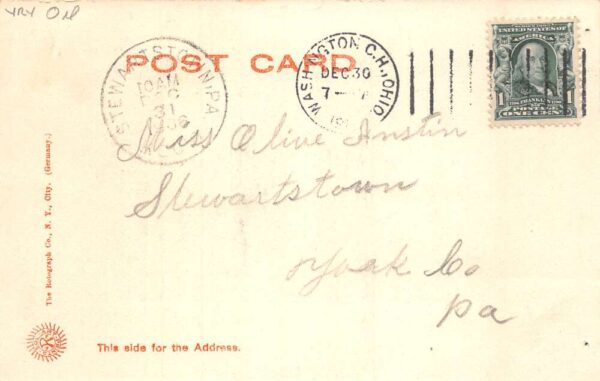 YRY Oil
POST CARD
STEWARTSTOWN, PA.
31
WASHINGTON C.H., OHIO
DEC 30
7—
UNITED STATES OF AMERICA
1 1
ONE CENT
Miss Olive Anstin
Stewartstown
York Co
Pa
The Rotograph Co., N. Y., City. (Germany.)
This side for the Address.